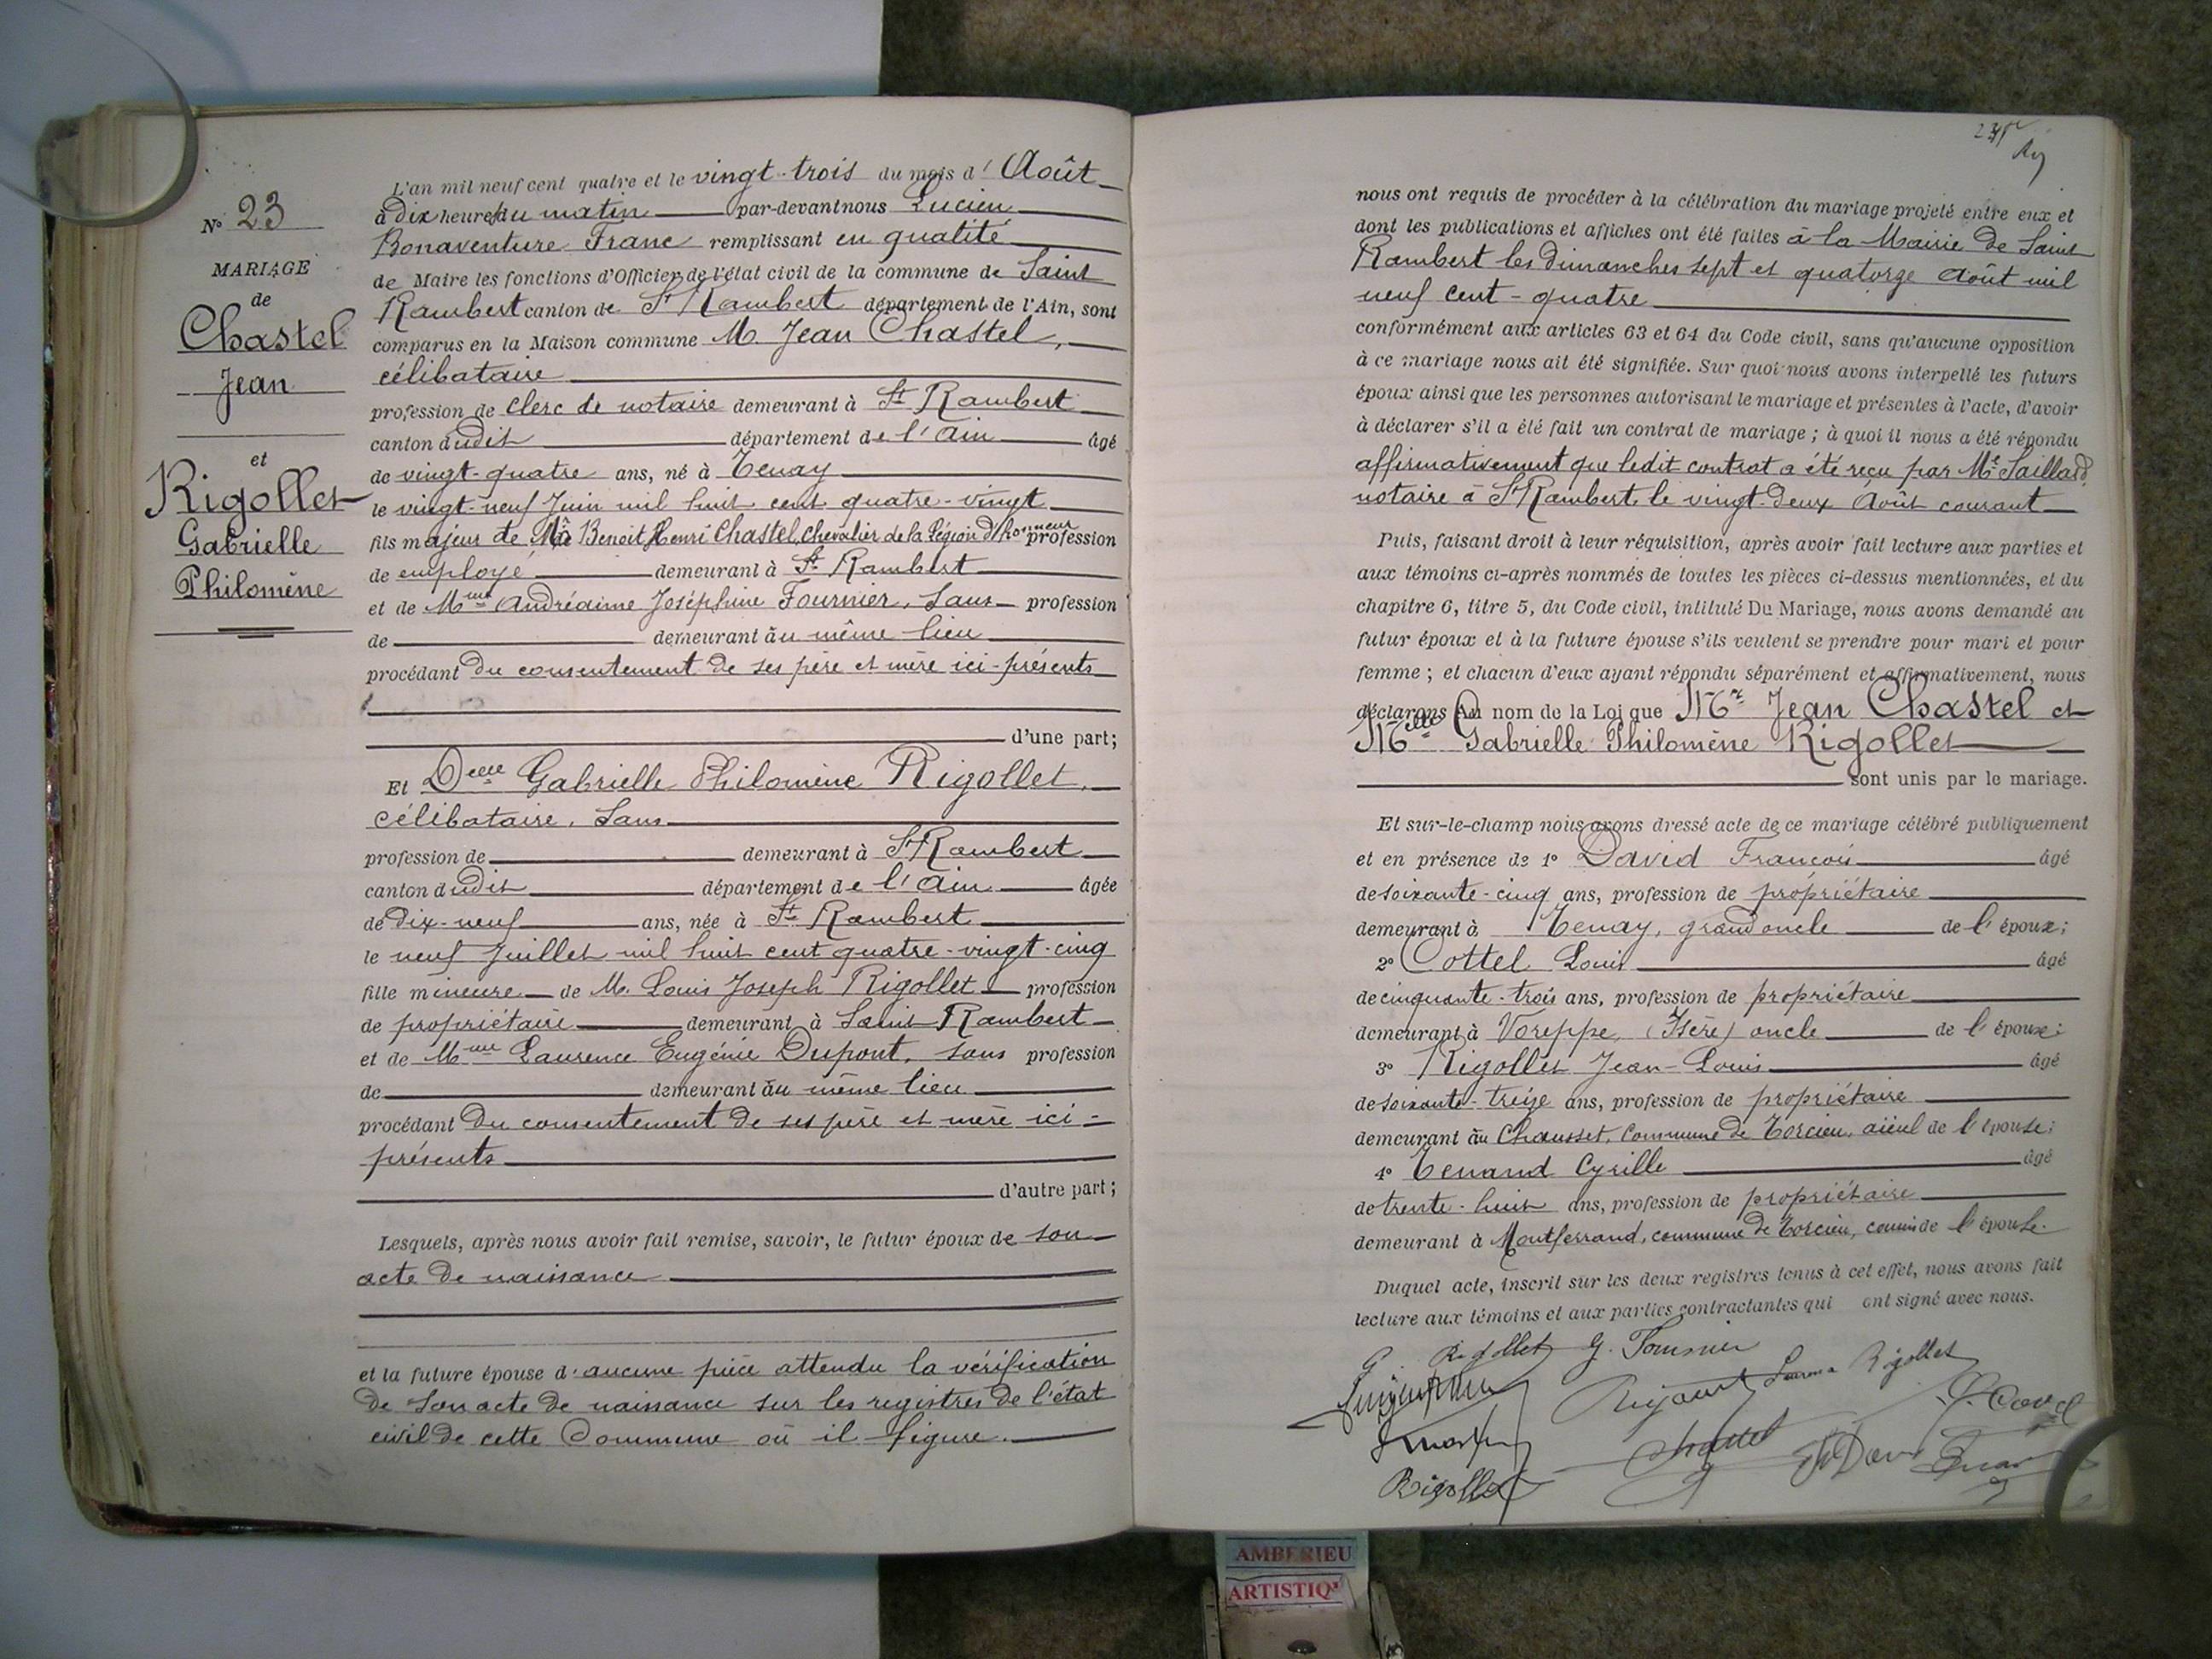 L'an mil neuf cent quatre et le vingt-trois du mois d'Août
à dix heures du matin par-devant nous Lucien
Bonaventure Franc remplissant en qualité
de Maire les fonctions d'Officier de l'état civil de la commune de Saint
Rambert canton de St Rambert département de l'Ain, sont
comparus en la Maison commune M. Jean Chastel,
célibataire
profession de clerc de notaire demeurant à St Rambert
canton dudit département de l'Ain âgé
de vingt-quatre ans, né à Tenay
le vingt-neuf Juin mil huit cent quatre-vingt
fils majeur de Benoit Henri Chastel, Chevalier de la Légion d'honneur profession
de employé demeurant à St Rambert
et de Mme Andréaime Joséphine Fournier, sans profession
de demeurant au même lieu
procédant du consentement de ses père et mère ici-présents
d'une part;
Et Delle Gabrielle Philomène Rigollet,
célibataire, sans
profession de demeurant à St Rambert
canton dudit département de l'Ain âgée
de dix-neuf ans, née à St Rambert
le neuf Juillet mil huit cent quatre-vingt-cinq
fille mineure de M. Louis Joseph Rigollet profession
de propriétaire demeurant à Saint Rambert
et de Mme Laurence Eugénie Dupont, sans profession
de demeurant au même lieu
procédant du consentement de ses père et mère ici-
présents
d'autre part;
Lesquels, après nous avoir fait remise, savoir, le futur époux de son
acte de naissance
et la future épouse d'aucune pièce attendu la vérification
de son acte de naissance sur les registres de l'état
civil de cette Commune où il figure.
No 23
MARIAGE
de
Chastel
Jean
et
Rigollet
Gabrielle
Philomène
nous ont requis de procéder à la célébration du mariage projeté entre eux et
dont les publications et affiches ont été faites à la Mairie de Saint
Rambert les dimanches sept et quatorze Août mil
neuf cent-quatre
conformément aux articles 63 et 64 du Code civil, sans qu'aucune opposition
à ce mariage nous ait été signifiée. Sur quoi nous avons interpellé les futurs
époux ainsi que les personnes autorisant le mariage et présentes à l'acte, d'avoir
à déclarer s'il a été fait un contrat de mariage ; à quoi il nous a été répondu
affirmativement que ledit contrat a été reçu par Me Saillard,
notaire à St Rambert, le vingt-deux Août courant
Puis, faisant droit à leur réquisition, après avoir fait lecture aux parties et
aux témoins ci-après nommés de toutes les pièces ci-dessus mentionnées, et du
chapitre 6, titre 5, du Code civil, intitulé Du Mariage, nous avons demandé au
futur époux et à la future épouse s'ils veulent se prendre pour mari et pour
femme ; et chacun d'eux ayant répondu séparément et affirmativement, nous
déclarons Au nom de la Loi que Mr Jean Chastel et
Melle Gabrielle Philomène Rigollet
sont unis par le mariage.
Et sur-le-champ nous avons dressé acte de ce mariage célébré publiquement
et en présence de 1o David François âgé
de soixante-cinq ans, profession de propriétaire
demeurant à Tenay, grand oncle de l'époux;
2o Cottel Louis âgé
de cinquante-trois ans, profession de propriétaire
demeurant à Voreppe, (Isère) oncle de l'épouse;
3o Rigollet Jean-Louis âgé
de soixante-treize ans, profession de propriétaire
demeurant au Chausset, Commune de Torcieu, aïeul de l'épouse;
4o Tenand Cyrille âgé
de trente-huit ans, profession de propriétaire
demeurant à Montferrand, commune de Torcieu, cousin de l'épouse.
Duquel acte, inscrit sur les deux registres tenus à cet effet, nous avons fait
lecture aux témoins et aux parties contractantes qui ont signé avec nous.
G. Rigollet G. Fournier
Rigollet
Chastel
Rigollet
AMBERIEU
ARTISTIQ